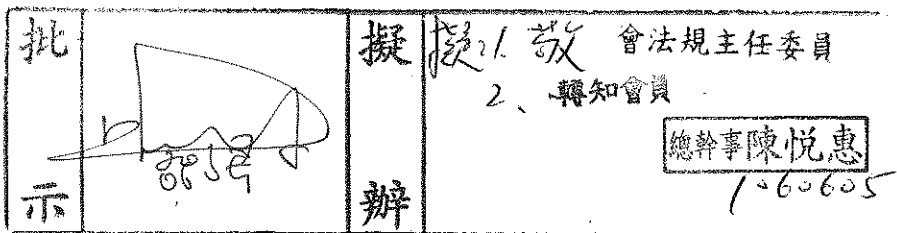 批示
擬辦
擬:1. 敬會法規主任委員
2、轉知會員
總幹事陳悅惠
1060605